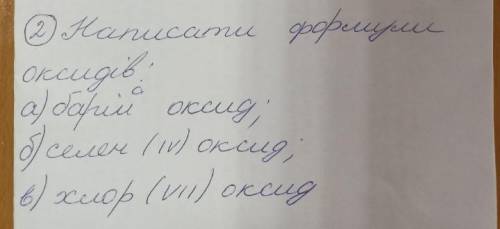 ② Написати формули
оксидів:
а) барій оксид;
б) селен (IV) оксид;
в) хлор (VII) оксид